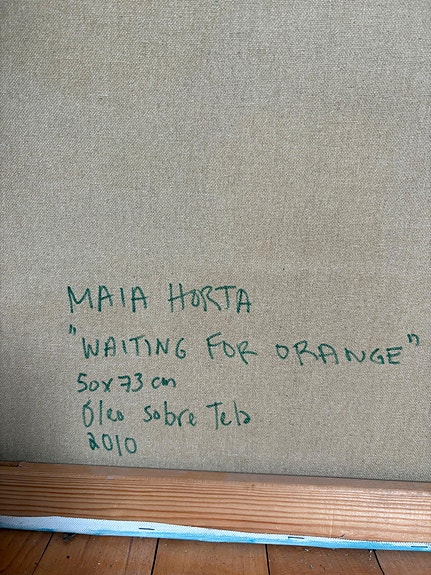 MAIA HORTA
"WAITING FOR ORANGE"
50x73 cm
Óleo sobre Tela
2010